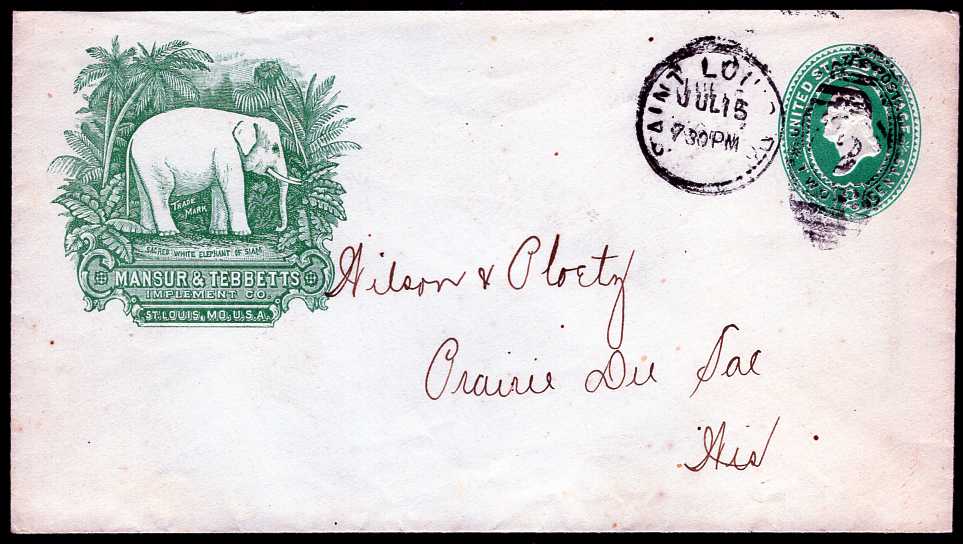 TRADE
MARK
SACRED WHITE ELEPHANT OF SIAM
MANSUR & TEBBETTS
IMPLEMENT CO.
ST. LOUIS, MO. U.S.A.
SAINT LOUIS MO
JUL 15
730PM
UNITED STATES POSTAGE
TWO CENTS
2
Wilson & Ploetz
Prairie Du Sac
Wis